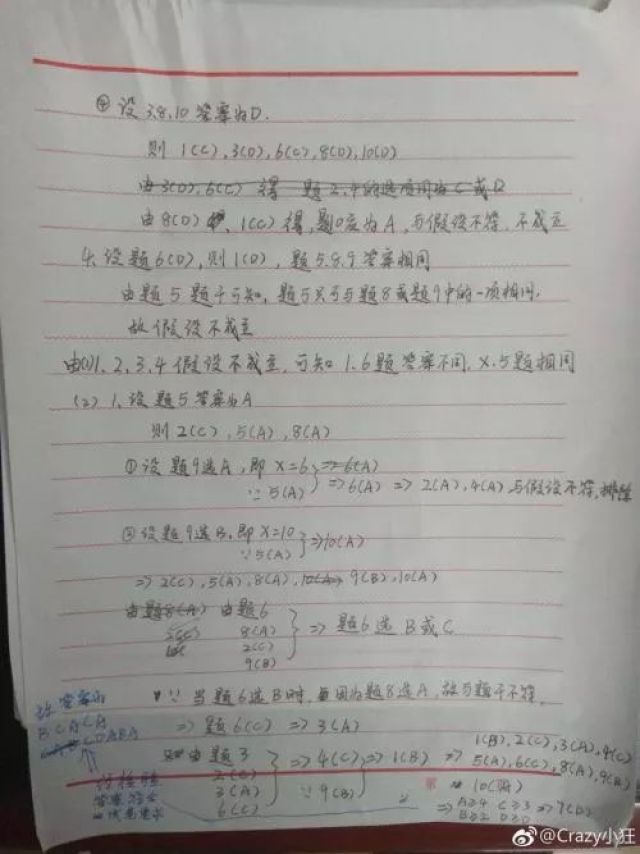 ④ 设3,8,10答案为D.
则 1(C), 3(D), 6(C), 8(D), 10(D)
由3(D), 6(C) 得 题2,4的选项同为C或D
由8(D) 1(C)得, 题10应为A, 与假设不符, 不成立
4. 设题6(D), 则1(D), 题5.8.9答案相同
由题5题干可知, 题5只可与题8或题9中的一项相同.
故假设不成立
由(1)1, 2, 3, 4假设不成立, 可知1.6题答案不同, X.5题相同
(2) 1. 设题5答案为A
则2(C), 5(A), 8(A)
①设题9选A, 即X=6 ⇒6(A)
∵5(A) ⇒6(A) ⇒ 2(A), 4(A) 与假设不符, 排除
②设题9选B, 即X=10
∵5(A) ⇒10(A)
⇒ 2(C), 5(A), 8(A), 10(A) 9(B), 10(A)
由题8(A) 由题6
8(A)
2(C)
9(B)
⇒ 题6选B或C
∵ 当题6选B时, 因为题8选A, 故与题干不符.
⇒ 题6(C) ⇒ 3(A)
由题3
2(C)
3(A)
6(C)
⇒ 4(C) ⇒ 1(B) ⇒
∵ 9(B)
1(B), 2(C), 3(A), 4(C)
5(A), 6(C), 8(A), 9(B)
10(A)
⇒ A≥4 C≥3 ⇒ 7(D)
B≥2 D≥0
答案为
BCACA
CDABA
经检验
答案符合
@Crazy小狂